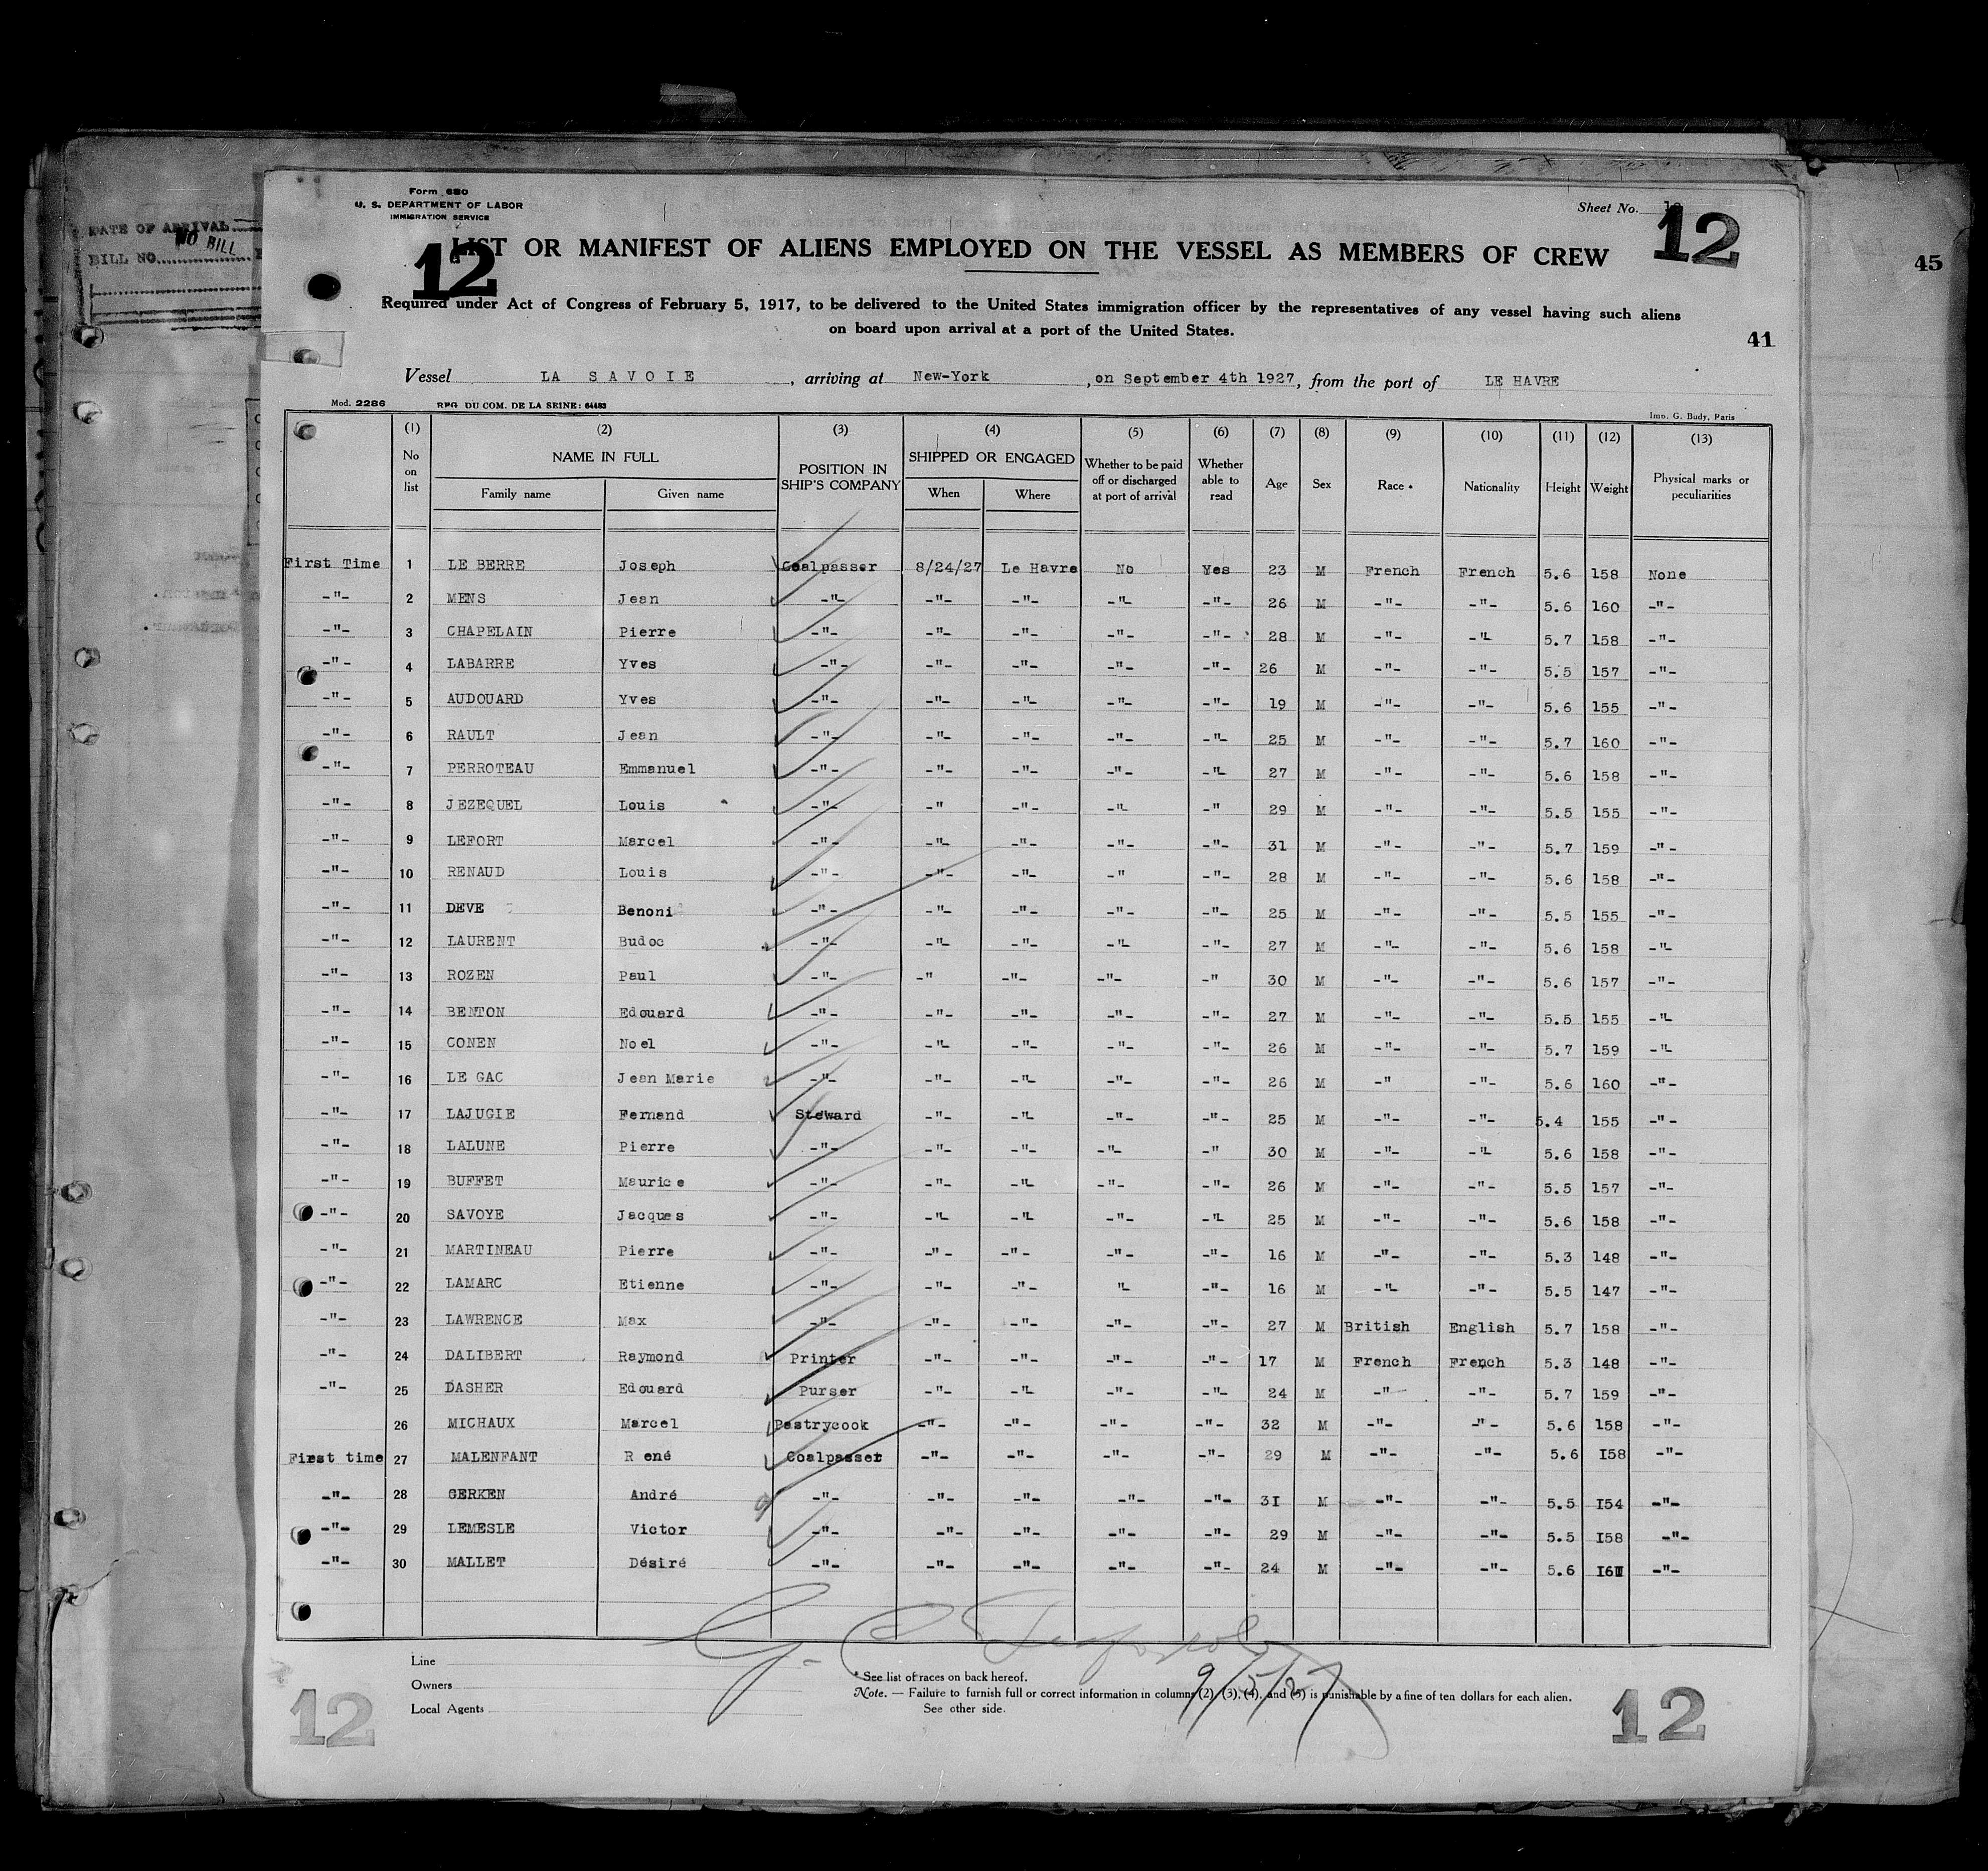 DATE OF ARRIVAL
NO BILL
BILL NO.
45
Form 680
U. S. DEPARTMENT OF LABOR
IMMIGRATION SERVICE
Sheet No. 12
12
12
LIST OR MANIFEST OF ALIENS EMPLOYED ON THE VESSEL AS MEMBERS OF CREW
Required under Act of Congress of February 5, 1917, to be delivered to the United States immigration officer by the representatives of any vessel having such aliens
on board upon arrival at a port of the United States.
41
Vessel LA SAVOIE, arriving at New-York, on September 4th 1927, from the port of LE HAVRE
Mod. 2286 REG. DU COM. DE LA SEINE: 64483 Imp. G. Budy, Paris
(1) (2) (3) (4) (5) (6) (7) (8) (9) (10) (11) (12) (13)
No on list NAME IN FULL Family name Given name POSITION IN SHIP'S COMPANY SHIPPED OR ENGAGED When Where Whether to be paid off or discharged at port of arrival Whether able to read Age Sex Race * Nationality Height Weight Physical marks or peculiarities
First Time 1 LE BERRE Joseph Coalpasser 8/24/27 Le Havre No Yes 23 M French French 5.6 158 None
-"- 2 MENS Jean -"- -"- -"- -"- -"- 26 M -"- -"- 5.6 160 -"-
-"- 3 CHAPELAIN Pierre -"- -"- -"- -"- -"- 28 M -"- -"- 5.7 158 -"-
-"- 4 LABARRE Yves -"- -"- -"- -"- -"- 26 M -"- -"- 5.5 157 -"-
-"- 5 AUDOUARD Yves -"- -"- -"- -"- -"- 19 M -"- -"- 5.6 155 -"-
-"- 6 RAULT Jean -"- -"- -"- -"- -"- 25 M -"- -"- 5.7 160 -"-
-"- 7 PERROTEAU Emmanuel -"- -"- -"- -"- -"- 27 M -"- -"- 5.6 158 -"-
-"- 8 JEZEQUEL Louis -"- -" -"- -"- -" 29 M -"- -"- 5.5 155 -"-
-"- 9 LEFORT Marcel -"- -"- -"- -"- -"- 31 M -"- -"- 5.7 159 -"-
-"- 10 RENAUD Louis -"- -"- -"- -" -"- 28 M -"- -"- 5.6 158 -"-
-"- 11 DEVE Benoni -"- -"- -"- -"- -"- 25 M -"- -"- 5.5 155 -"-
-"- 12 LAURENT Budoc -"- -"- -"- -"- -"- 27 M -"- -"- 5.6 158 -"-
-"- 13 ROZEN Paul -"- -" -"- -"- -" 30 M -"- -"- 5.6 157 -"-
-"- 14 BENTON Edouard -"- -"- -"- -"- -"- 27 M -"- -"- 5.5 155 -"-
-"- 15 CONEN Noel -"- -"- -"- -"- -"- 26 M -"- -"- 5.7 159 -"-
-"- 16 LE GAC Jean Marie -"- -"- -"- -"- -"- 26 M -" -"- 5.6 160 -"-
-"- 17 LAJUGIE Fernand Steward -"- -"- -"- -"- 25 M -"- -"- 5.4 155 -"-
-"- 18 LALUNE Pierre -"- -"- -"- -"- -" 30 M -"- -"- 5.6 158 -"-
-"- 19 BUFFET Maurice -"- -"- -"- -"- -"- 26 M -"- -"- 5.5 157 -"-
-"- 20 SAVOYE Jacques -"- -"- -"- -"- -"- 25 M -"- -"- 5.6 158 -"-
-"- 21 MARTINEAU Pierre -"- -"- -"- -"- -"- 16 M -"- -"- 5.3 148 -"-
-"- 22 LAMARC Etienne -"- -"- -"- "- -"- 16 M -"- -"- 5.5 147 -"-
-"- 23 LAWRENCE Max -"- -"- -"- -"- -"- 27 M British English 5.7 158 -"-
-"- 24 DALIBERT Raymond Printer -"- -"- -"- -"- 17 M French French 5.3 148 -"-
-"- 25 DASHER Edouard Purser -"- -"- -"- -"- 24 M -"- -"- 5.7 159 -"-
26 MICHAUX Marcel Pastrycook -"- -"- -"- -"- 32 M -"- -"- 5.6 158 -"-
First time 27 MALENFANT R ené Coalpasser -"- -"- -"- -"- 29 M -"- -"- 5.6 I58 -"-
-"- 28 GERKEN André -"- -"- -"- -"- -"- 3I M -"- -"- 5.5 I54 -"-
-"- 29 LEMESLE Victor -"- -"- -"- -"- -"- 29 M -"- -"- 5.5 I58 -"-
-"- 30 MALLET Désiré -"- -"- -"- -"- -"- 24 M -"- -"- 5.6 -"-
Line
Owners
Local Agents
* See list of races on back hereof.
Note. — Failure to furnish full or correct information in columns (2), (3), (4), and (5) is punishable by a fine of ten dollars for each alien.
See other side.
9/5/27
12
12